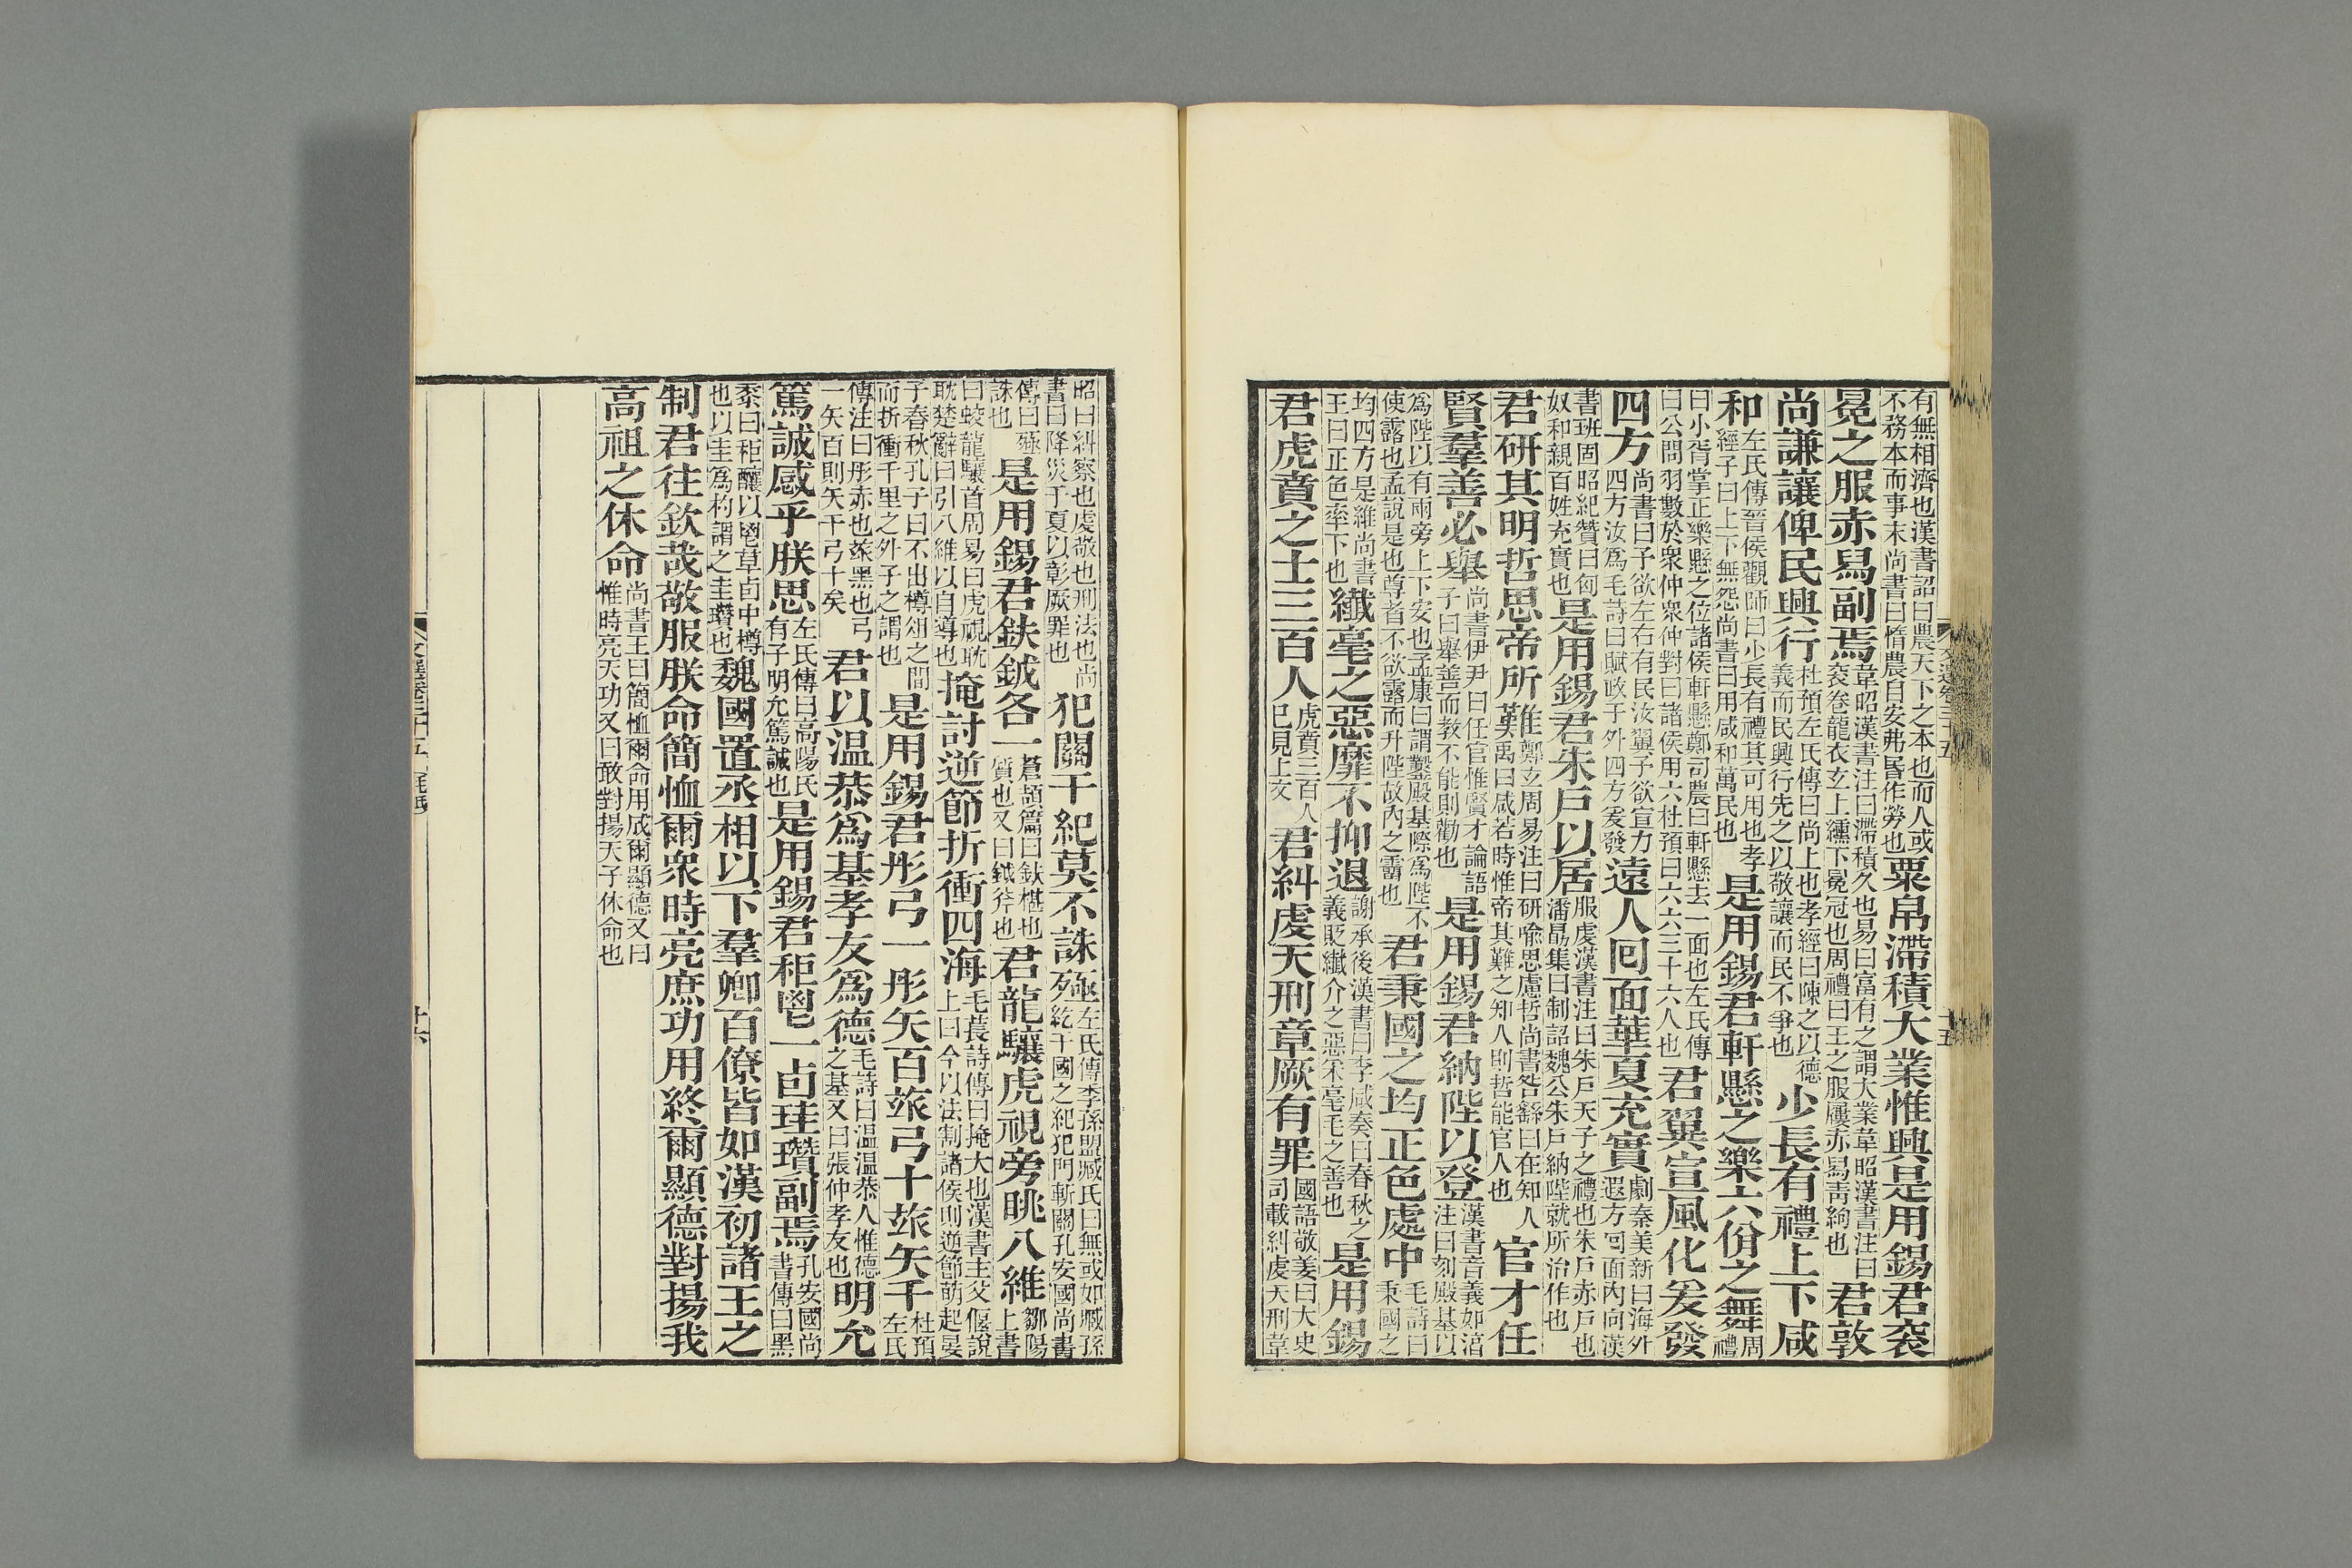 有無相濟也漢書詔曰農天下之本也而人或
不務本而事末尚書曰惰農自安弗昬作勞也
粟帛滯積大業惟興是用錫君袞
冕之服赤舄副焉
韋昭漢書注曰滯積久也易曰富有之謂大業韋昭漢書注曰
袞卷龍衣玄上纁下冕冠也周禮曰王之服屨赤舄靑絇也
君敦
尚謙讓俾民興行
杜預左氏傳曰尚上也孝經曰陳之以德
義而民興行先之以敬讓而民不爭也
少長有禮上下咸
和
左氏傳晉侯觀師曰少長有禮其可用也孝
經子曰上下無怨尚書曰用咸和萬民也
是用錫君軒懸之樂六佾之舞
周
禮
曰小胥掌正樂懸之位諸侯軒懸鄭司農曰軒懸去一面也左氏傳
曰公問羽數於衆仲衆仲對曰諸侯用六杜預曰六六三十六人也
君翼宣風化爰發
四方
尚書曰予欲左右有民汝翼予欲宣力
四方汝爲毛詩曰賦政于外四方爰發
遠人回面華夏充實
劇秦美新曰海外
遐方囘面內向漢
書班固昭紀贊曰匈
奴和親百姓充實也
是用錫君朱戶以居
服虔漢書注曰朱戶天子之禮也朱戶赤戶也
潘勗集曰制詔魏公朱戶納陛就所治作也
君研其明哲思帝所難
鄭玄周易注曰研喻思慮哲尚書咎繇曰在知人
禹曰咸若時惟帝其難之知人則哲能官人也
官才任
賢羣善必舉
尚書伊尹曰任官惟賢才論語
子曰舉善而教不能則勸也
是用錫君納陛以登
漢書音義如淳
注曰刻殿基以
爲陛以有兩旁上下安也孟康曰謂鑿殿基際爲陛不
使露也孟說是也尊者不欲露而升陛故內之霤也
君秉國之均正色處中
毛詩曰
秉國之
均四方是維尚書
王曰正色率下也
纖毫之惡靡不抑退
謝承後漢書曰李咸奏曰春秋之
義貶纖介之惡采毫毛之善也
是用錫
君虎賁之士三百人
虎賁三百人
已見上文
君糾虔天刑章厥有罪
國語敬姜曰大史
司載糾虔天刑韋
昭曰糾察也虔敬也刑法也尚
書曰降災于夏以彰厥罪也
犯關干紀莫不誅殛
左氏傳季孫盟臧氏曰無或如臧孫
紇干國之紀犯門斬關孔安國尚書
傳曰殛
誅也
是用錫君鈇鉞各一
蒼頡篇曰鈇椹也
質也又曰鉞斧也
君龍驤虎視旁眺八維
鄒陽
上書
曰蛟龍驤首周易曰虎視眈
眈楚辭曰引八維以自導也
掩討逆節折衝四海
毛萇詩傳曰掩大也漢書主父偃說
上曰今以法割諸侯則逆節萌起晏
子春秋孔子曰不出樽俎之間
而折衝千里之外子之謂也
是用錫君彤弓一彤矢百玈弓十玈矢千
杜預
左氏
傳注曰彤赤也玈黑也弓
一矢百則矢千弓十矣
君以温恭爲基孝友爲德
毛詩曰温温恭人惟德
之基又曰張仲孝友也
明允
篤誠感乎朕思
左氏傳曰高陽氏
有子明允篤誠也
是用錫君秬鬯一卣珪瓚副焉
孔安國尚
書傳曰黑
黍曰秬釀以鬯草卣中樽
也以圭爲杓謂之圭瓚也
魏國置丞相以下羣卿百僚皆如漢初諸王之
制君往欽哉敬服朕命簡恤爾衆時亮庶功用終爾顯德對揚我
高祖之休命
尚書王曰簡恤爾命用成爾顯德又曰
惟時亮天功又曰敢對揚天子休命也